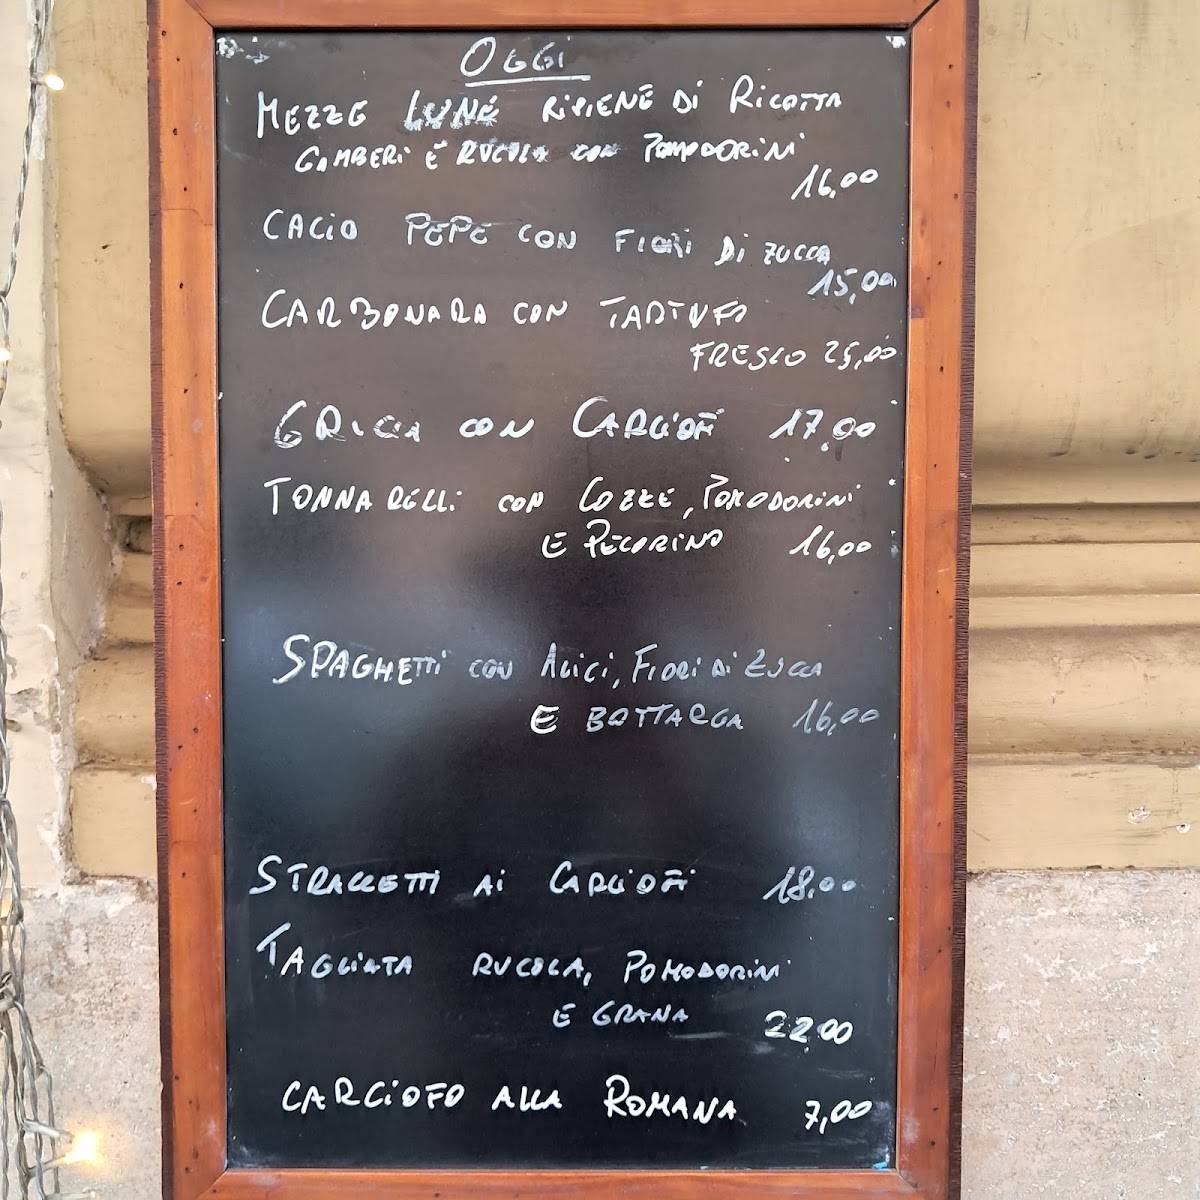 OGGi
MEZZE LUNE RIPIENE Di RicOTTA
GAMBERi E RUCOLA CON POMODORiNi
16,00
CACiO PEPE CON FIORi Di ZUCCA
15,00
CARBONARA CON TARTUFO
FRESCO 25,00
GRiciA CON CARCiOFi 17,00
TONNARELLi CON COZZE, POMODORiNi
E PECORINO 16,00
SPAGHETTi CON ALiCi, FIORi Di ZUCCA
E BOTTARGA 16,00
STRACCETTi Ai CARCiOFi 18,00
TAGLiATA RUCOLA, POMODORiNi
E GRANA 22,00
CARCiOFO ALLA ROMANA 7,00